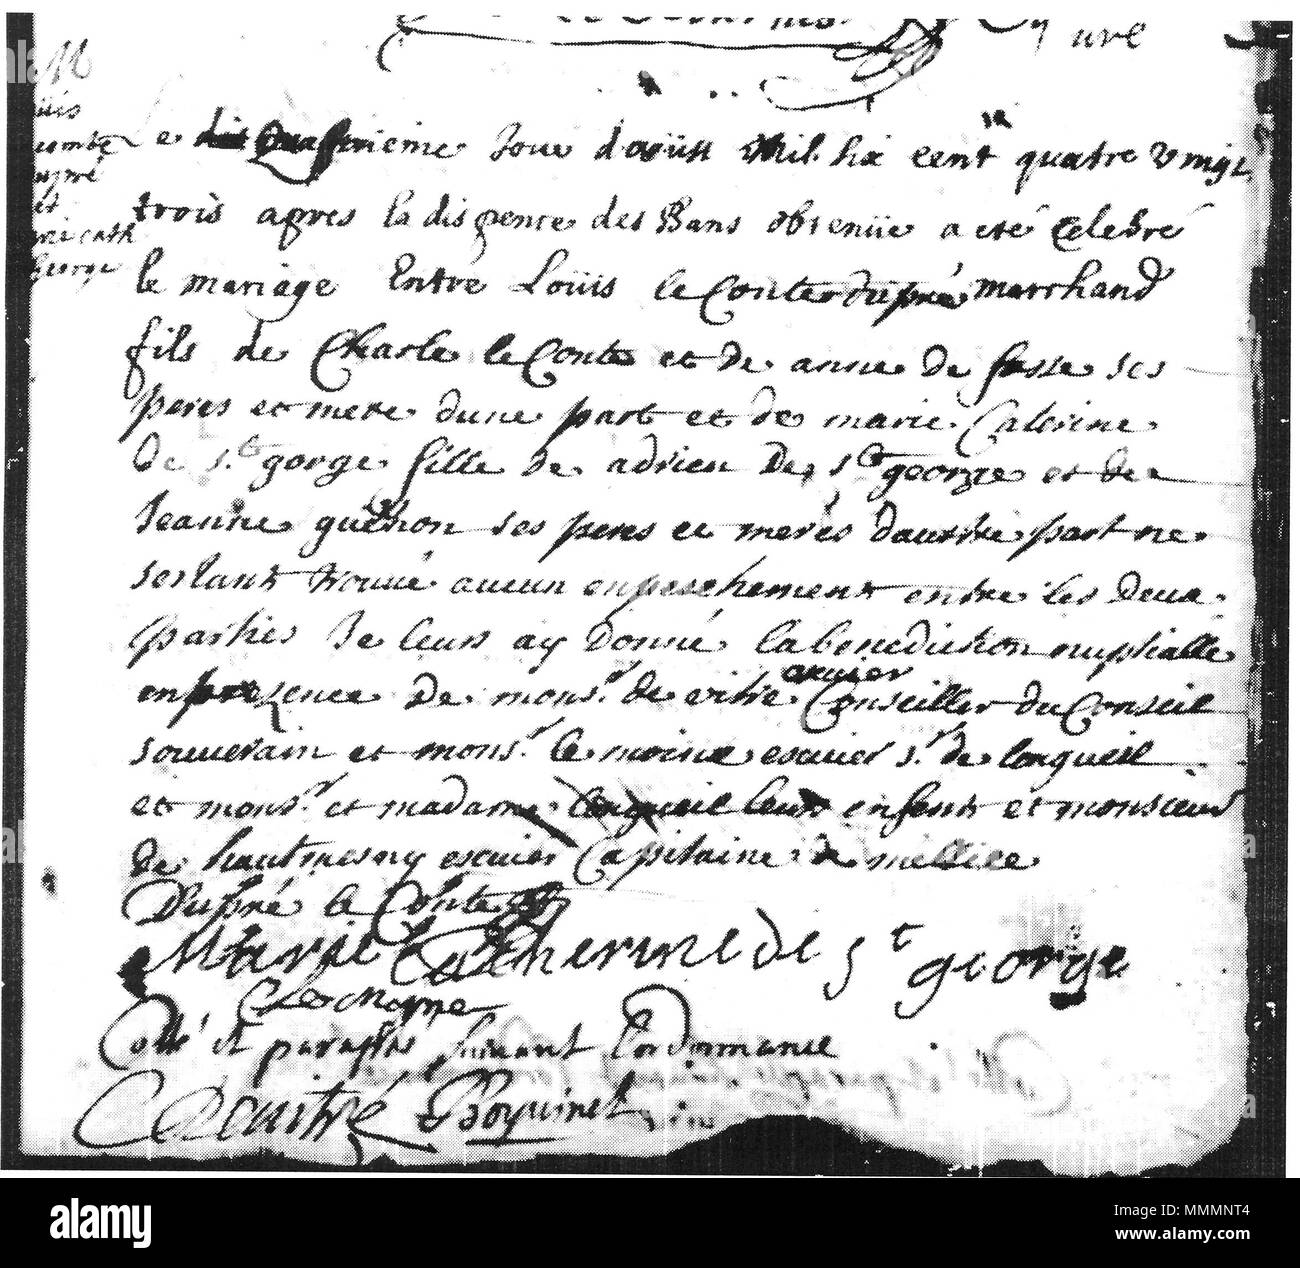 ure
M
üis
comte
upré
et
rie cath
George
Le quatrieme Jour daoust Mil six cent quatre vingt
trois apres la dispence des Bans obtenüe a eté Celebré
le mariage Entre Loüis le Conte dupré marchand
fils de Charle le Conte et de anne de fosse ses
peres et mere dune part et de marie Caterine
de s.t gorge fille de adrien de s.t george et de
Jeanne guenon ses peres et meres dautre part ne
sestant trouué aucun enpeschement entre les deux
parties Je leurs ay Donné la benediction nuptialle
en presence de mons.r de vitré escuier Conseiller du Conseil
souuerain et mons.r le moine escuier s.r de longueil
et mons.r et madame longueil leur enfent et monsieur
de hautmesny escuier Capitaine de milliee
Dupré le Conte
Marie Catherine de st george
Lemoyne
Cotté et paraphé suiuant Lordonnance
Deuitré Boyuinet
alamy
Image ID: MMMNT4
www.alamy.com